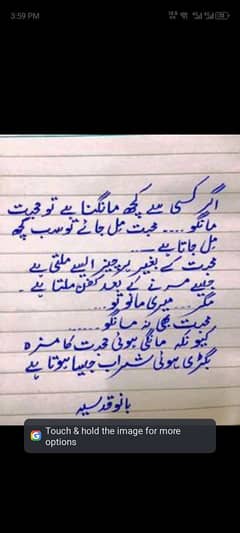 3:59 PM
اگر کسی سے کچھ مانگنا ہے تو محبت
مانگو .... محبت مل جائے تو سب کچھ
مل جاتا ہے ...
محبت کے بغیر ہر چیز ایسے ملتی ہے
جیسے مرنے کے بعد کفن ملتا ہے ۔
مگر ... میری مانو تو ...
محبت بھی نہ مانگو ......
کیونکہ مانگی ہوئی محبت کا مزہ
بگڑی ہوئی شراب جیسا ہوتا ہے
بانو قدسیہ
Touch & hold the image for more
options